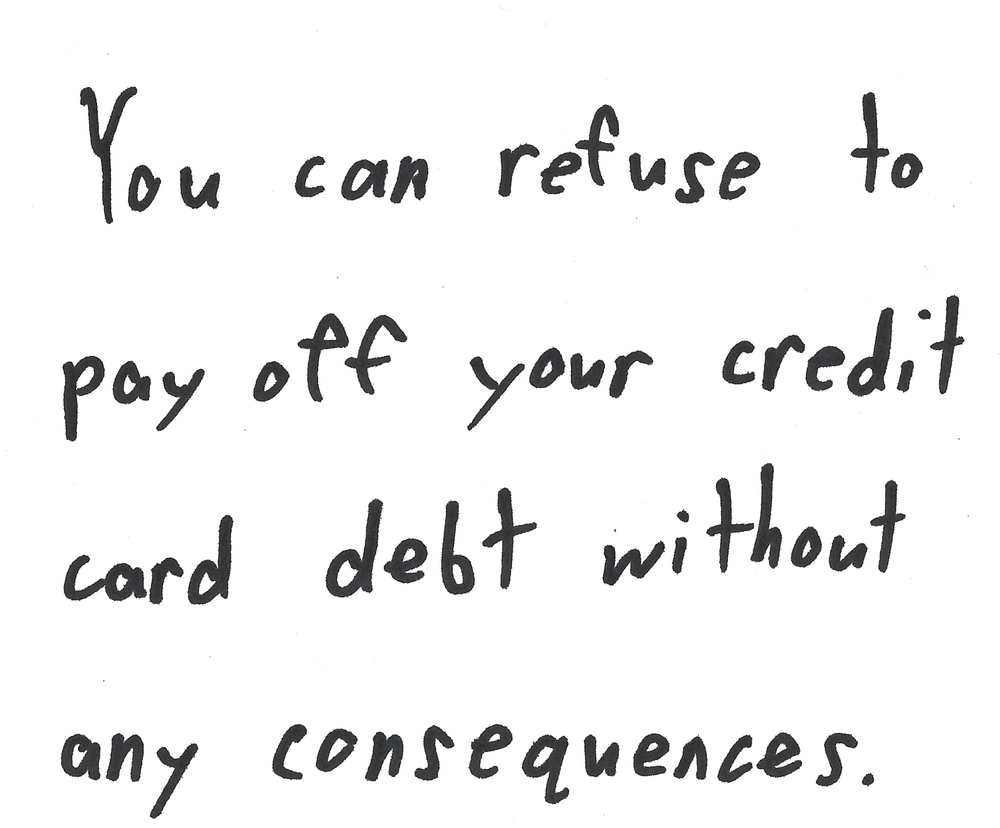 You can refuse to
pay off your credit
card debt without
any consequences.